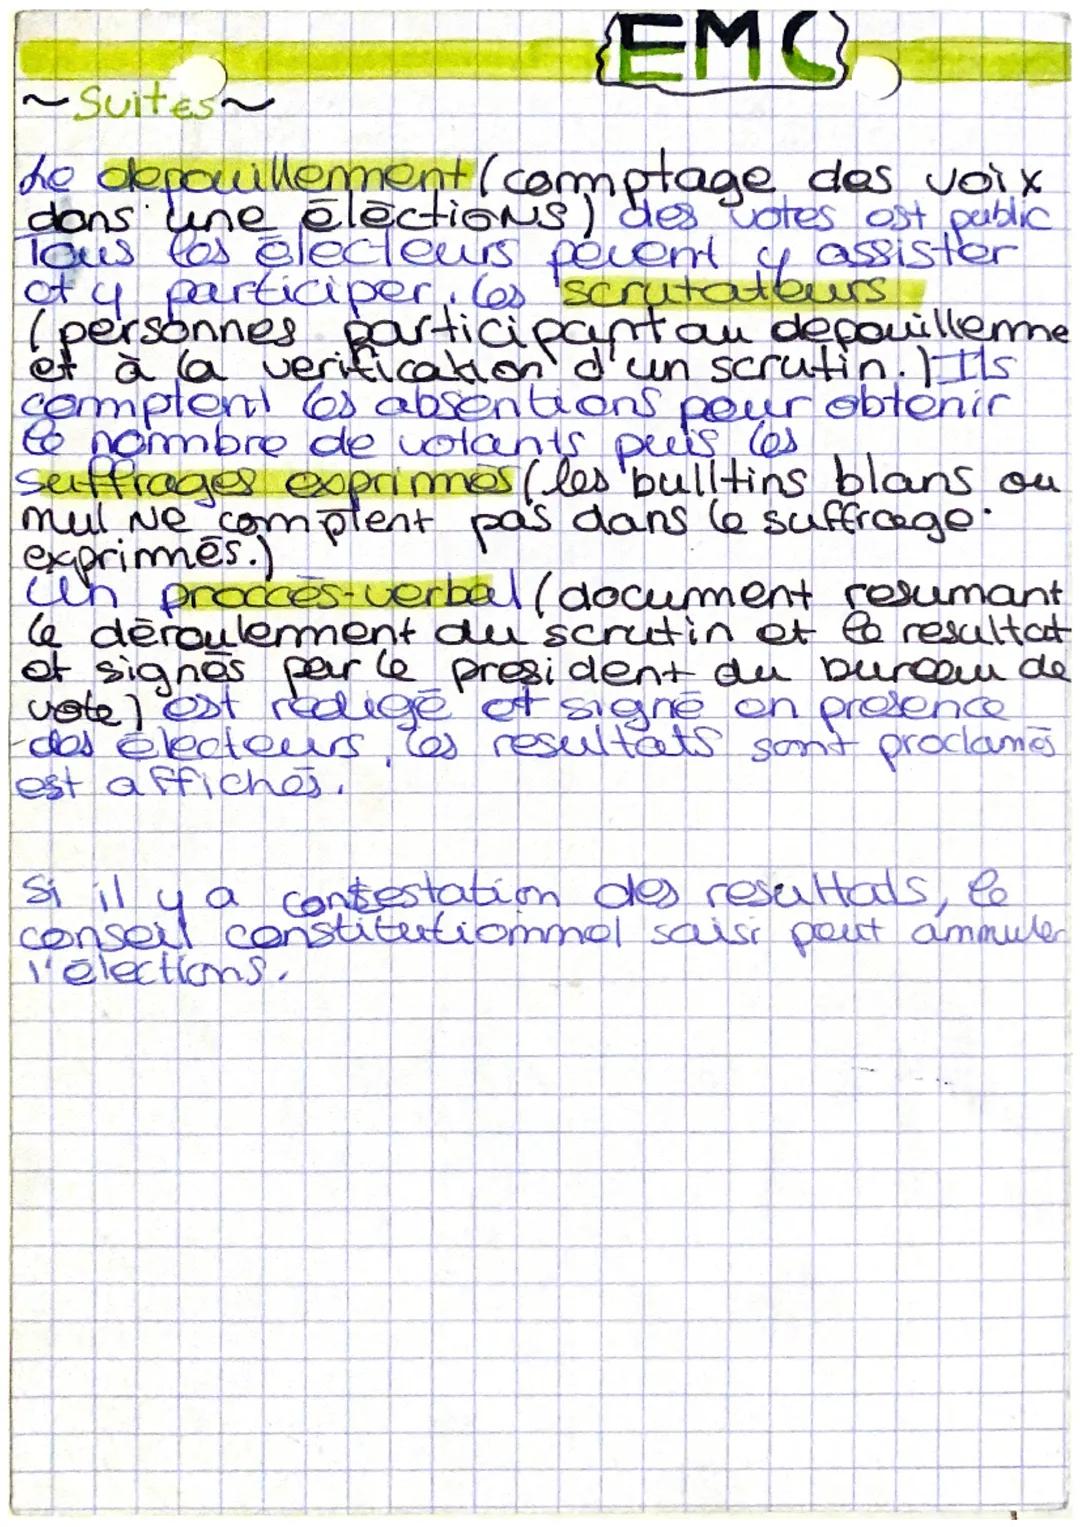 EMC
~Suites~
Le depouillement (comptage des voix
dans une élèctions) des votes est public
Tous les électeurs peuent y assister
et y participer, les scrutateurs
(personnes participant au depouilleme
et à la verification d'un scrutin.) Ils
comptent les absentions pour obtenir
le nombre de votants puis les
suffrages exprimés (les bulltins blans ou
nul Ne comptent pas dans le suffrage.
exprimés.)
Un proccès-verbal (document resumant
le déroulement du scrutin et le resultat
et signés par le president du bureau de
vote) est redigé et signé en presence
des électeurs, les resultats sont proclamés
est affichés.
Si il y a contestation des resultats, le
conseil constitutionnel saisi peut annuler
l'élections.